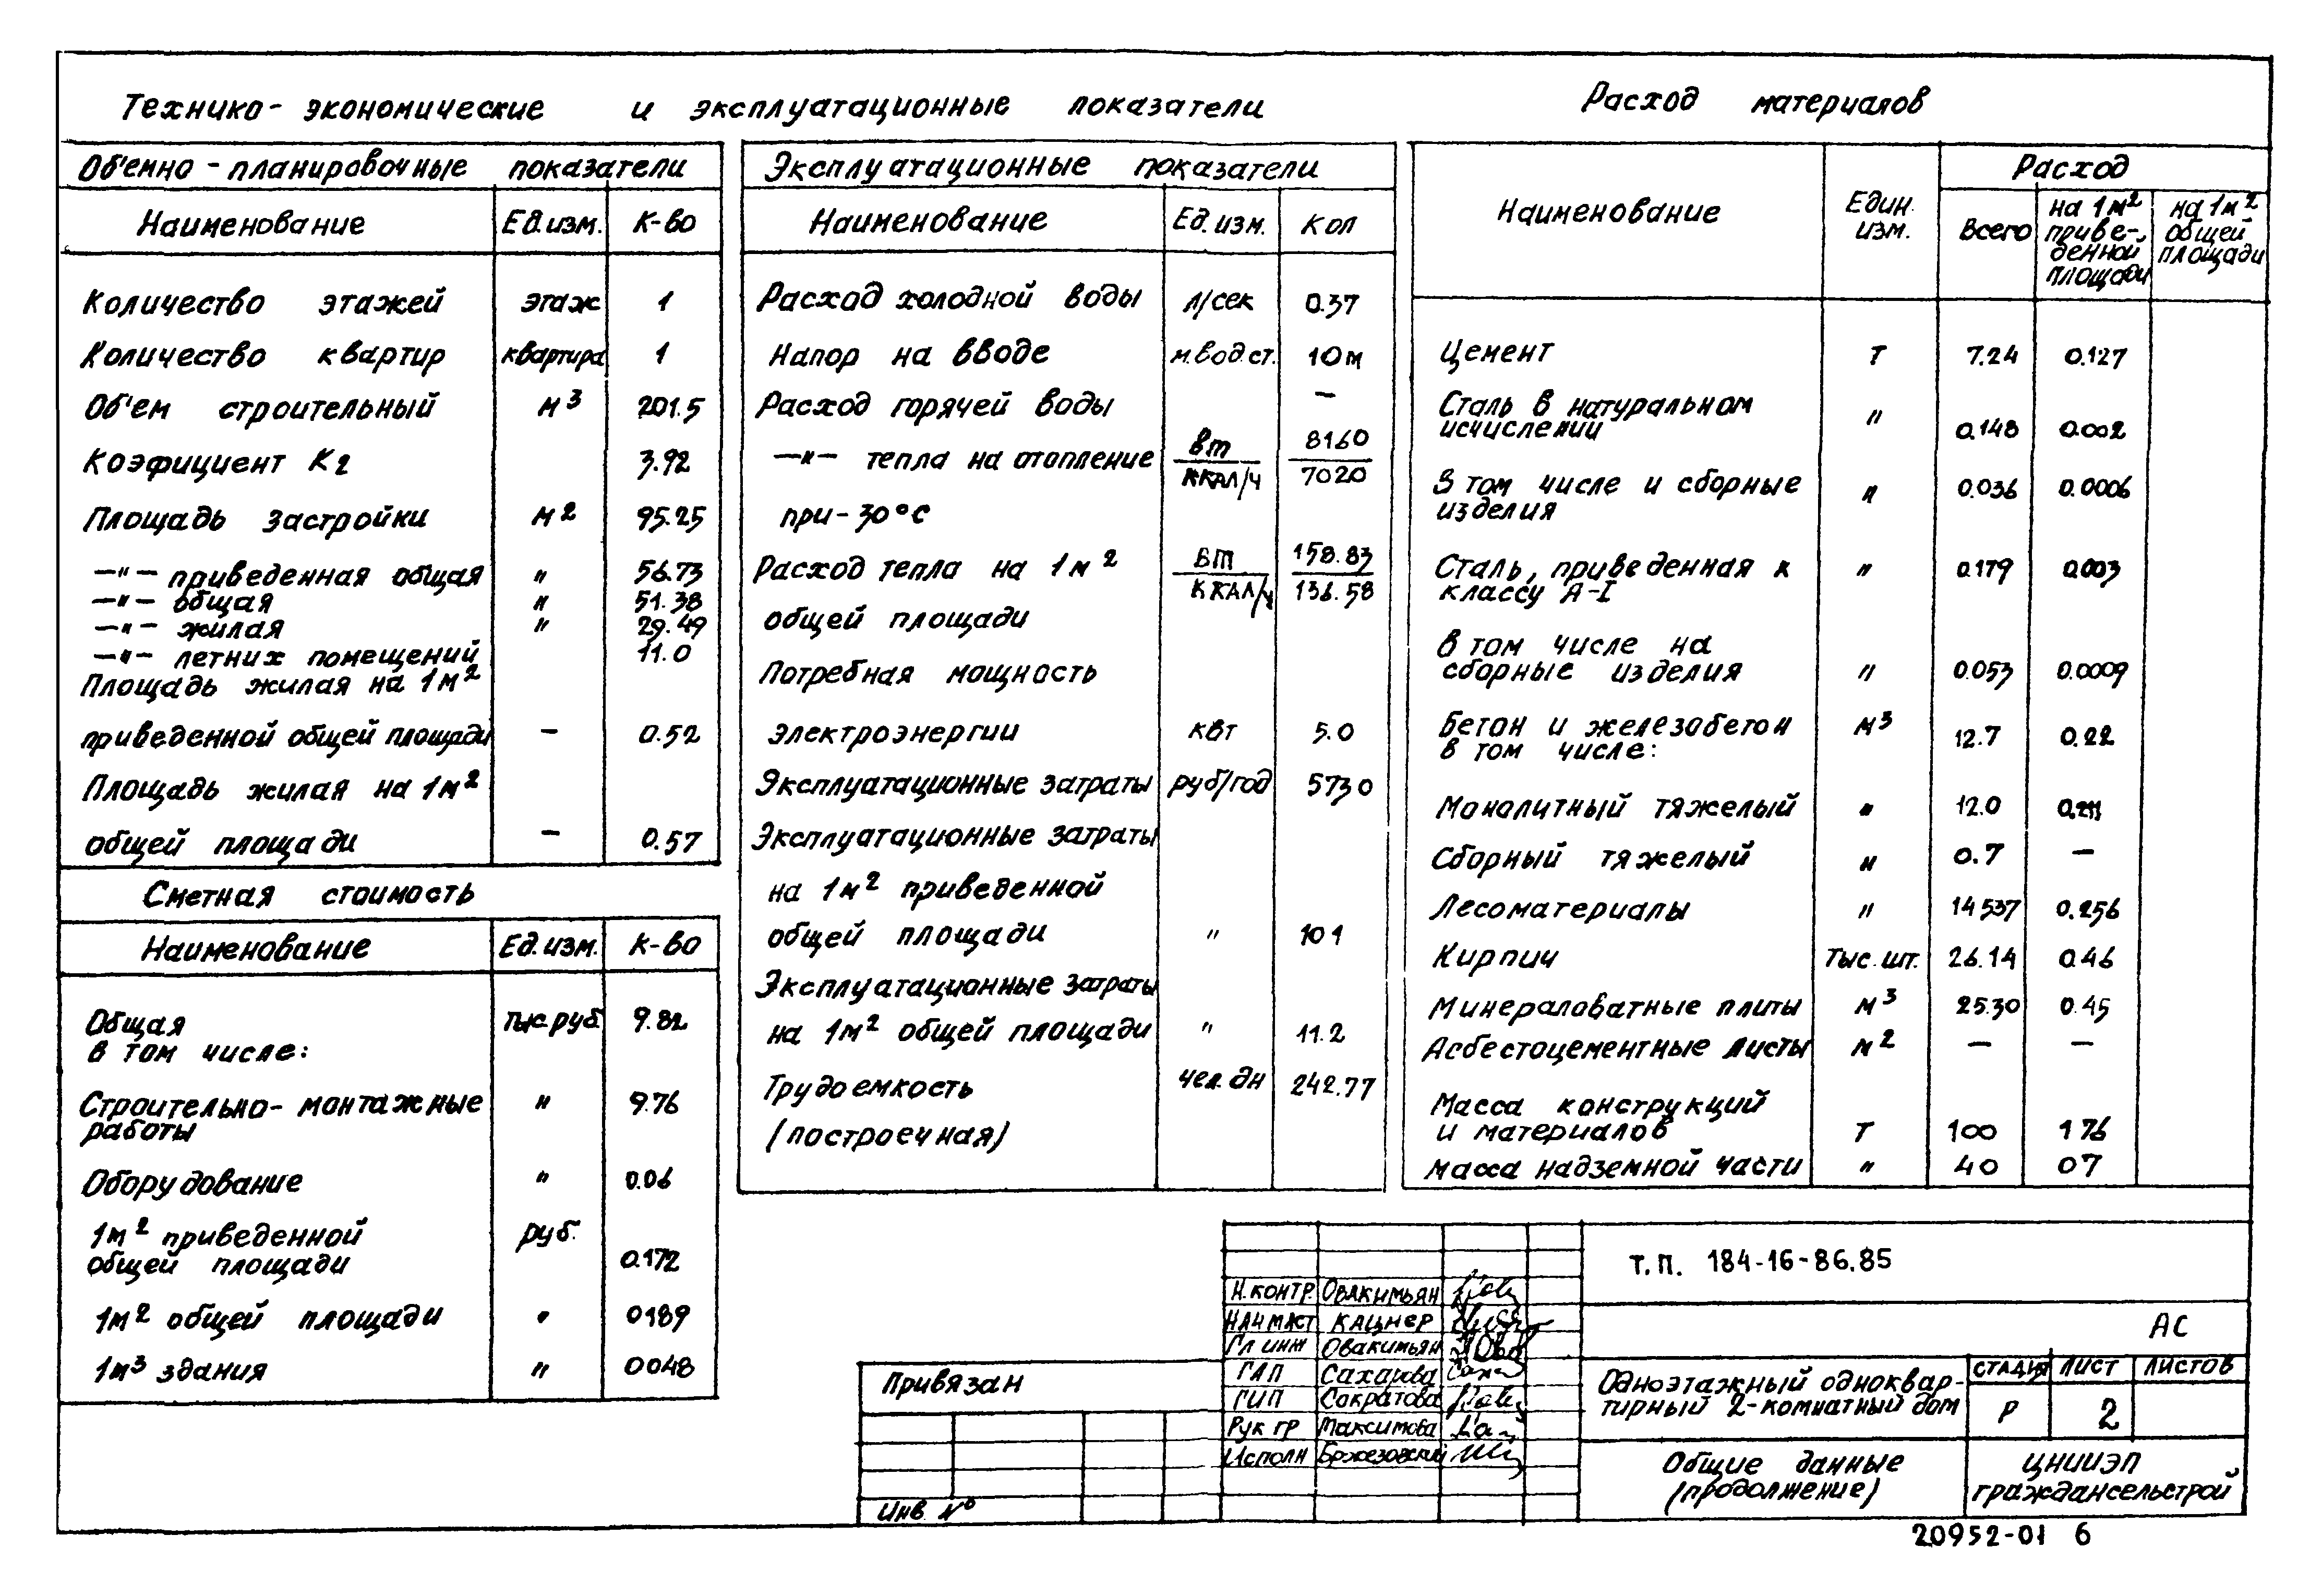 Технико-экономические и эксплуатационные показатели
Расход материалов
Об'емно-планировочные показатели
Наименование Ед.изм. К-во
Количество этажей этаж 1
Количество квартир квартира 1
Об'ем строительный м3 201.5
Коэфициент К2 3.92
Площадь застройки м2 95.25
—"— приведенная общая " 56.73
—"— общая " 51.38
—"— жилая " 29.49
—"— летних помещений 11.0
Площадь жилая на 1м2
приведенной общей площади — 0.52
Площадь жилая на 1м2
общей площади — 0.57
Сметная стоимость
Наименование Ед.изм. К-во
Общая тыс.руб 9.82
в том числе:
Строительно-монтажные " 9.76
работы
Оборудование " 0.06
1м2 приведенной руб.
общей площади 0.172
1м2 общей площади " 0189
1м3 здания " 0048
Эксплуатационные показатели
Наименование Ед.изм. Кол
Расход холодной воды л/сек 0.37
Напор на вводе м.вод.ст. 10м
Расход горячей воды —
—"— тепла на отопление вт/ккал/ч 8160/7020
при -30°С
Расход тепла на 1м2 вт/ккал/ч 158.83/136.58
общей площади
Потребная мощность
электроэнергии квт 5.0
Эксплуатационные затраты руб/год 5730
Эксплуатационные затраты
на 1м2 приведенной
общей площади " 101
Эксплуатационные затраты
на 1м2 общей площади " 11.2
Трудоемкость чел.дн 242.77
(построечная)
Наименование Един. изм. Расход
Всего на 1м2 приведенной площади на 1м2 общей площади
Цемент т 7.24 0.127
Сталь в натуральном
исчислении " 0.148 0.002
В том числе и сборные " 0.036 0.0006
изделия
Сталь, приведенная к " 0.179 0.003
классу А-I
в том числе на
сборные изделия " 0.053 0.0009
Бетон и железобетон м3 12.7 0.22
в том числе:
Монолитный тяжелый " 12.0 0.211
Сборный тяжелый " 0.7 —
Лесоматериалы " 14537 0.256
Кирпич тыс.шт. 26.14 0.46
Минераловатные плиты м3 25.30 0.45
Асбестоцементные листы м2 — —
Масса конструкций
и материалов т 100 176
масса надземной части " 40 07
Т.П. 184-16-86.85
АС
Н.контр. Овакимьян
Нач маст Кацнер
Гл инж Овакимьян
ГАП Сахарова
ГИП Сократова
Рук гр Максимова
Исполн Бржезовский
Одноэтажный одноквар-
тирный 2-комнатный дом
стадия лист листов
Р 2
Общие данные
(продолжение)
ЦНИИЭП
граждансельстрой
Привязан
Инв. №
20952-01 6